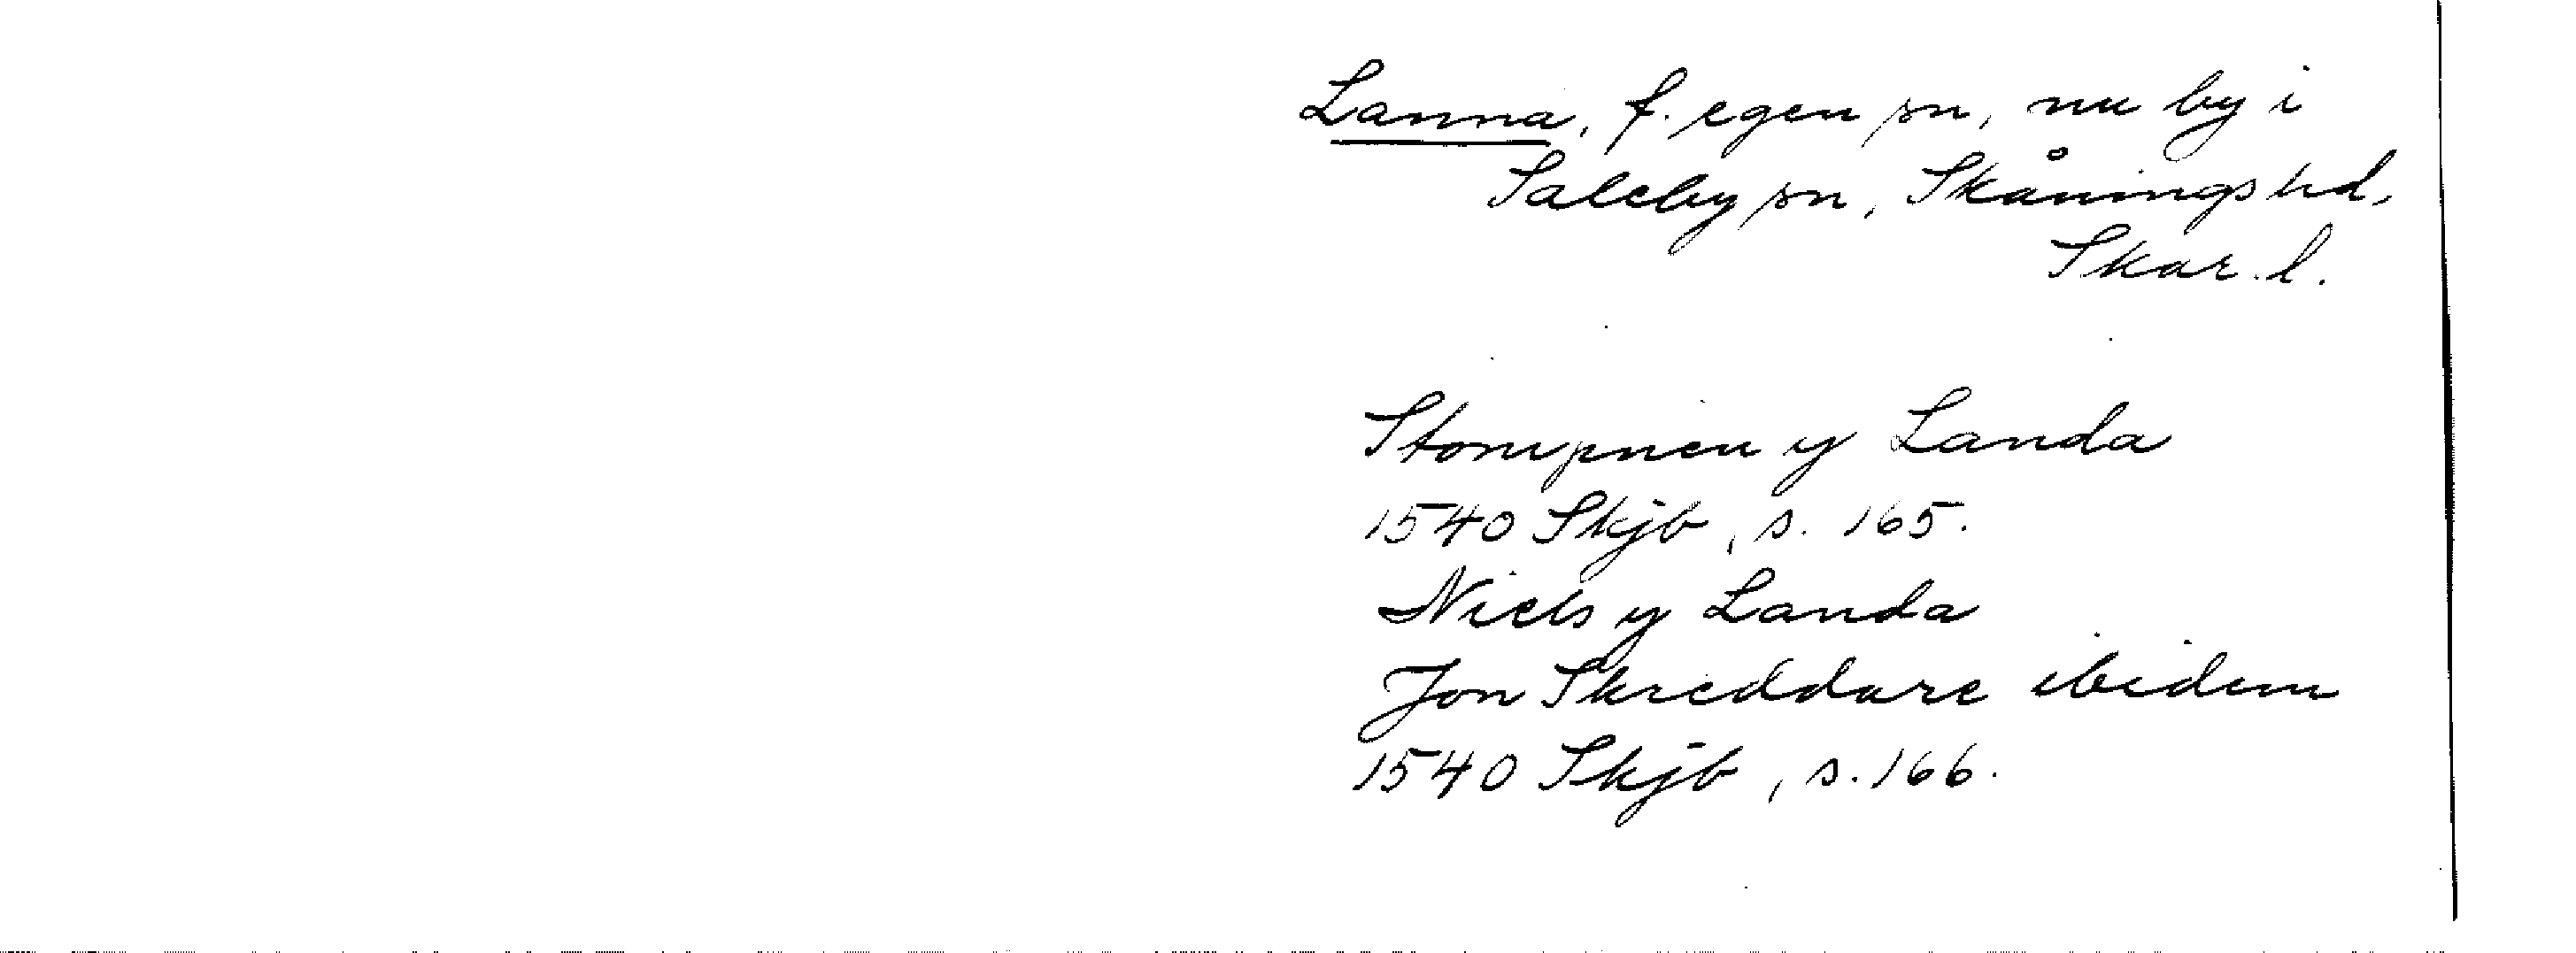 Lanna, f. egen sn, nu by i
Saleby sn, Skånings hd,
Skar. l.
Stompnen y Landa
1540 Skjb, s. 165.
Niels y Landa
Jon Skreddare ibidem
1540 Skjb, s. 166.